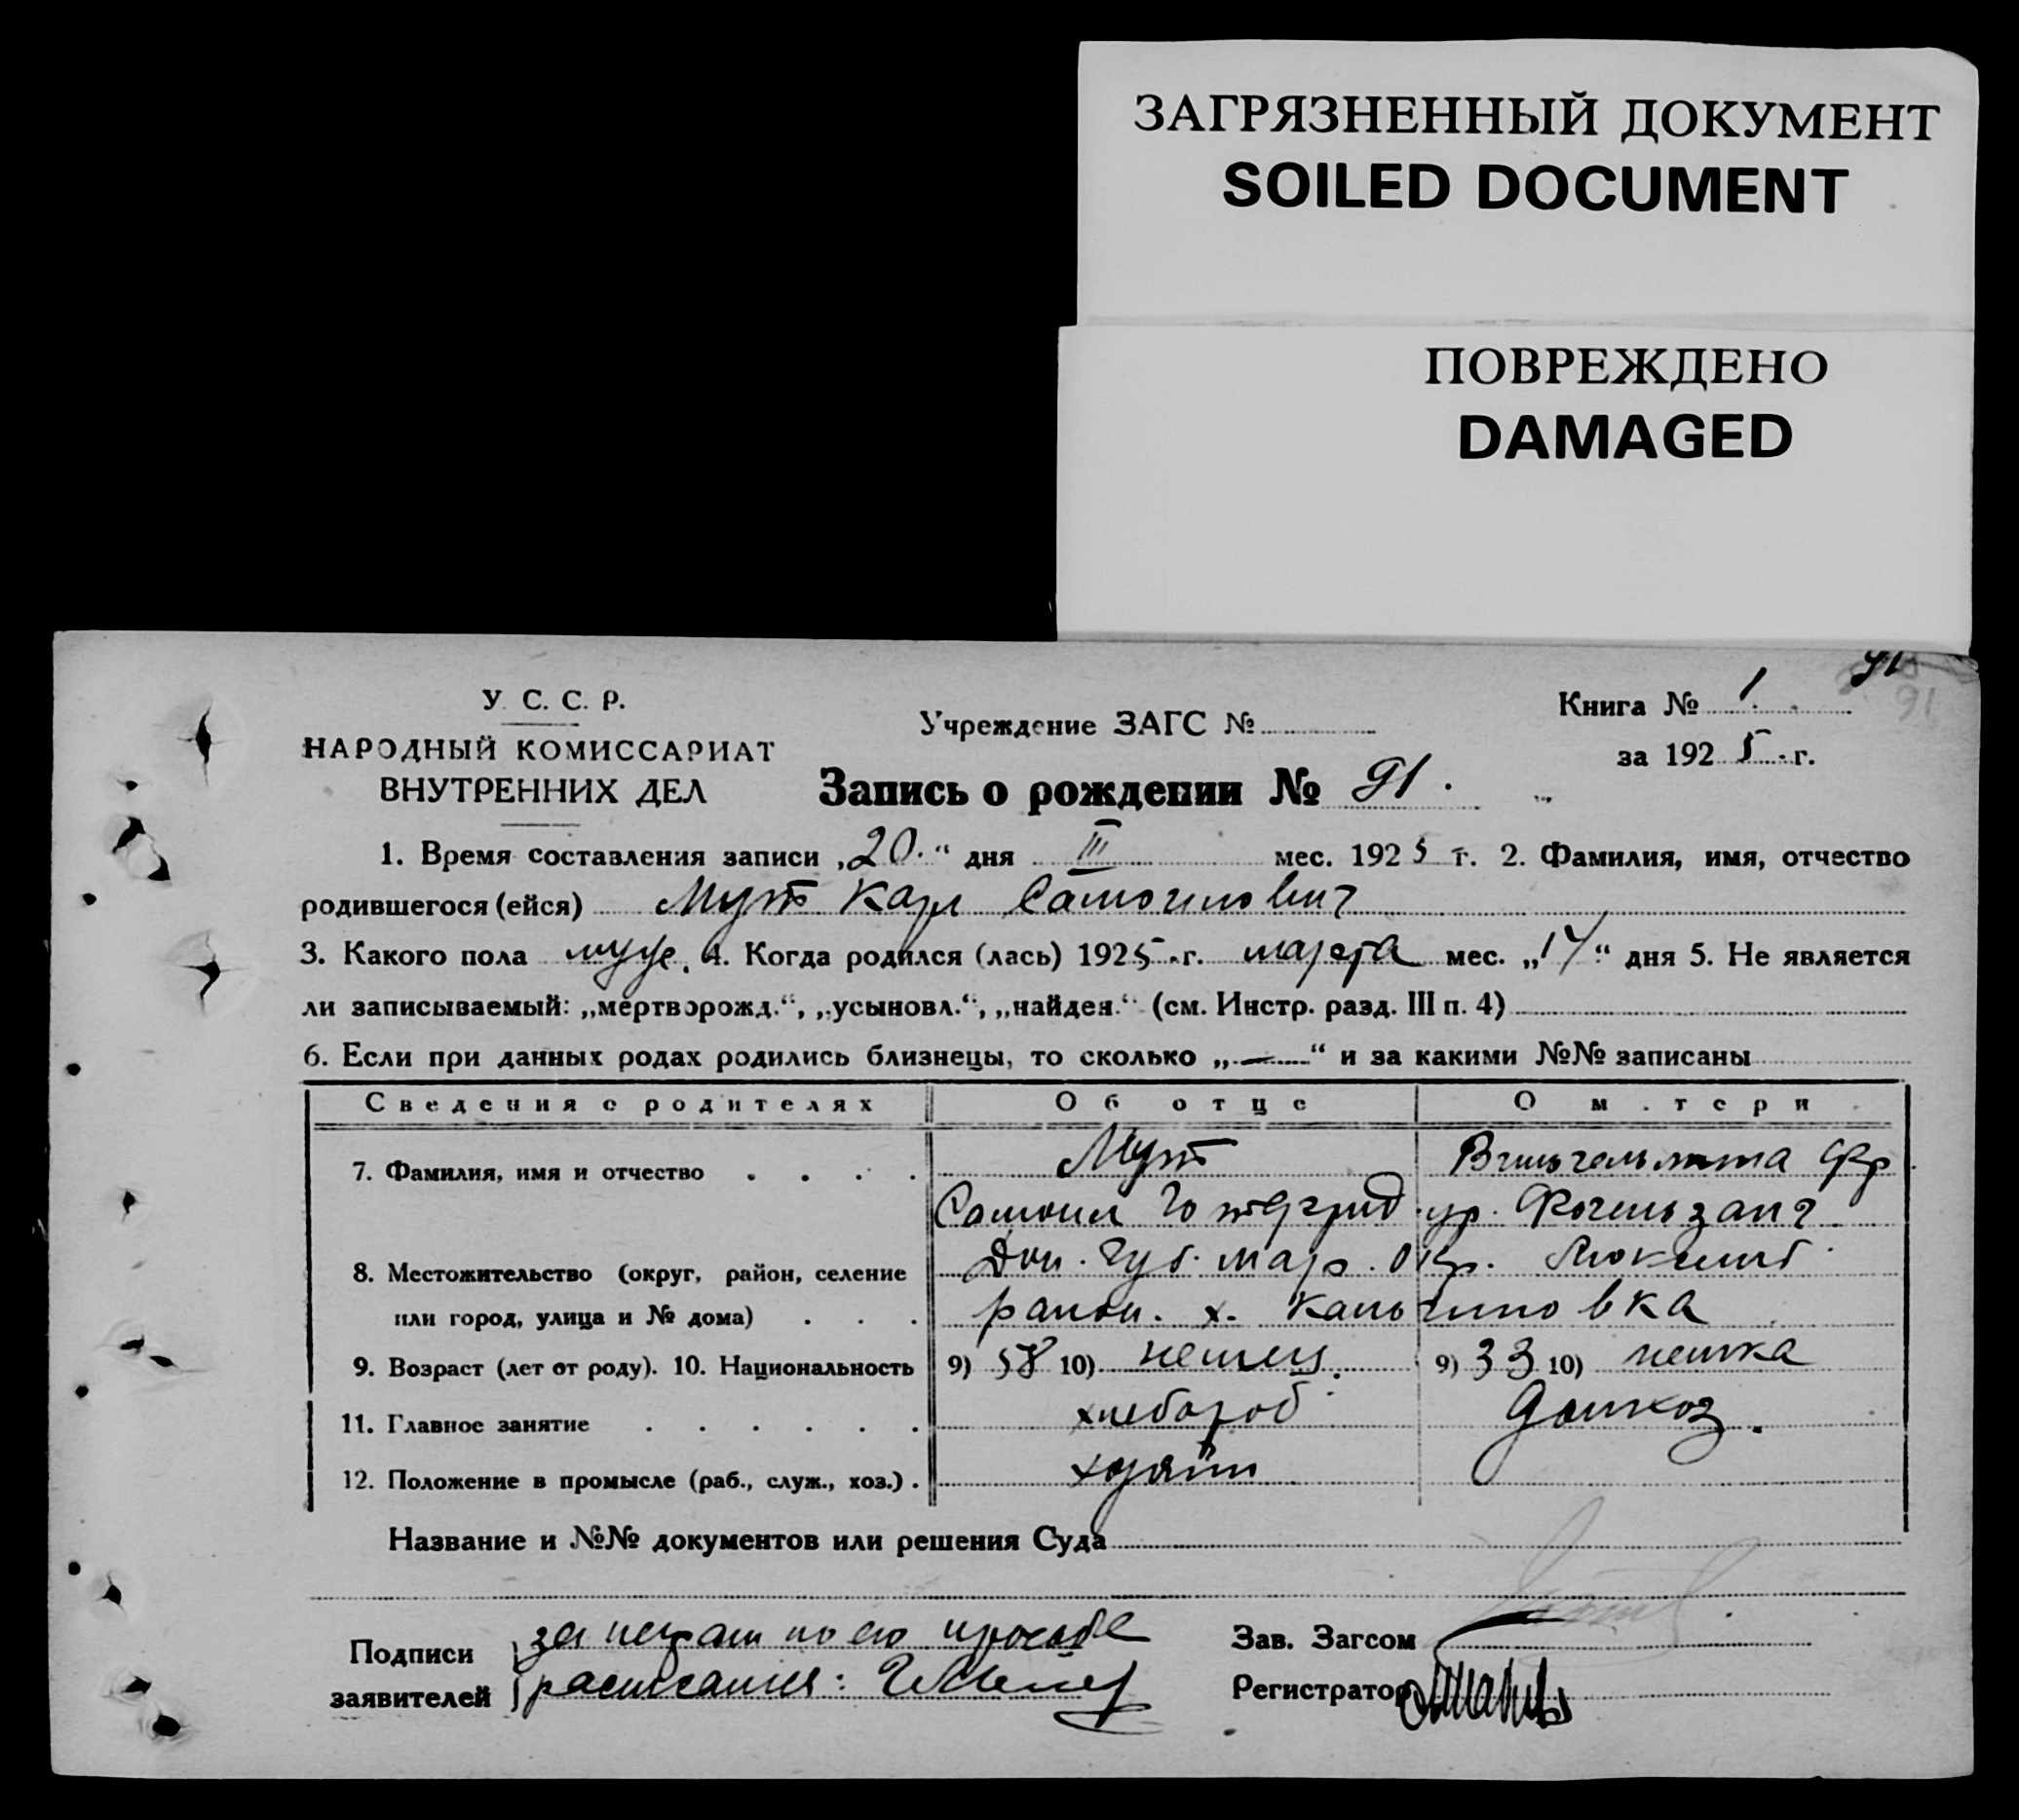 ЗАГРЯЗНЕННЫЙ ДОКУМЕНТ
SOILED DOCUMENT
ПОВРЕЖДЕНО
DAMAGED
91
91
У. С. С. Р.
НАРОДНЫЙ КОМИССАРИАТ
ВНУТРЕННИХ ДЕЛ
Учреждение ЗАГС №
Книга № 1.
за 1925 г.
Запись о рождении № 91.
1. Время составления записи „20.“ дня III мес. 1925 г. 2. Фамилия, имя, отчество
родившегося (ейся) Мут Карл Самоилович
3. Какого пола муж. 4. Когда родился (лась) 1925 г. марта мес. „14“ дня 5. Не является
ли записываемый: „мертворожд.“, „усыновл.“, „найден.“ (см. Инстр. разд. III п. 4)
6. Если при данных родах родились близнецы, то сколько „—“ и за какими №№ записаны
Сведения о родителях Об отце О матери
7. Фамилия, имя и отчество . . . . Мут Вильгельмина Фр
Самоил Готфрид. ур. Фогельзанг
8. Местожительство (округ, район, селение Дон. Губ. Мар. Окр. Люксемб.
или город, улица и № дома) . . . район. х. Кальчиновка
9. Возраст (лет от роду). 10. Национальность 9) 58 10) немец. 9) 33 10) немка
11. Главное занятие . . . . . . хлебороб домхоз.
12. Положение в промысле (раб., служ., хоз.) . хозяин
Название и №№ документов или решения Суда
Подписи
заявителей
за неграм по его просьбе
расписался:
Зав. Загсом
Регистратор